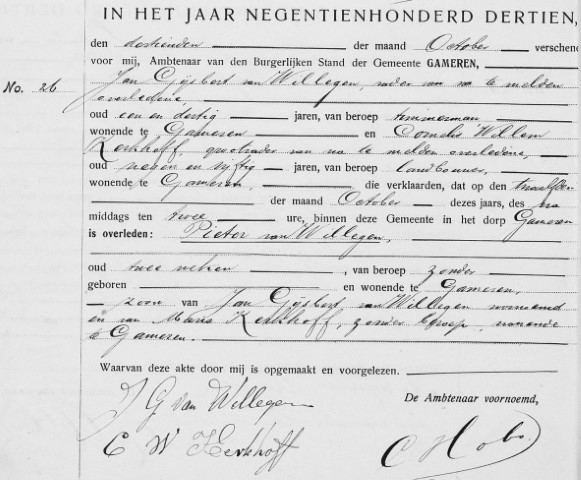 IN HET JAAR NEGENTIENHONDERD DERTIEN,
den dertienden der maand October verschene
voor mij, Ambtenaar van den Burgerlijken Stand der Gemeente GAMEREN,
No. 26 Jan Gijsbert van Willegen, vader van na te melden
overledene,
oud een en dertig jaren, van beroep timmerman
wonende te Gameren en Cornelis Willem
Kerkhoff, grootvader van na te melden overledene,
oud negen en vijftig jaren, van beroep landbouwer,
wonende te Gameren, die verklaarden, dat op den twaalfden
der maand October dezes jaars, des na
middags ten twee ure, binnen deze Gemeente in het dorp Gameren
is overleden: Pieter van Willegen,
oud twee weken, van beroep zonder
geboren en wonende te Gameren,
zoon van Jan Gijsbert van Willegen voornoemd
en van Maria Kerkhoff, zonder beroep, wonende
te Gameren.
Waarvan deze akte door mij is opgemaakt en voorgelezen.
J G van Willegen De Ambtenaar voornoemd,
C W Kerkhoff